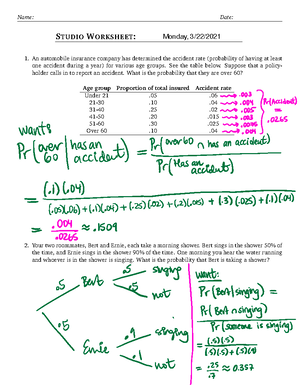 Name:
Date:
STUDIO WORKSHEET: Monday, 3/22/2021
1. An automobile insurance company has determined the accident rate (probability of having at least
one accident during a year) for various age groups. See the table below. Suppose that a policy-
holder calls in to report an accident. What is the probability that they are over 60?
Age group Proportion of total insured Accident rate
Under 21 .05 .06 → .003
21-30 .10 .04 → .004
31-40 .25 .02 → .005
41-50 .20 .015 → .003
51-60 .30 .025 → .0075
Over 60 .10 .04 → .004
Pr(Accident)
=
.0265
want:
Pr(over 60 | has an accident) = Pr(over 60 ∩ has an accident) / Pr(Has an accident)
= (.1)(.04)
(.05)(.06) + (.1)(.04) + (.25)(.02) + (.2)(.015) + (.3)(.025) + (.1)(.04)
= .004 / .0265 ≈ .1509
2. Your two roommates, Bert and Ernie, each take a morning shower. Bert sings in the shower 50% of
the time, and Ernie sings in the shower 90% of the time. One morning you hear the water running
and whoever is in the shower is singing. What is the probability that Bert is taking a shower?
.5 Bert .5 singing
.5 not
.5 Ernie .9 singing
.1 not
want:
Pr(Bert | singing) =
Pr(Bert ∩ singing)
Pr(someone is singing)
= (.5)(.5)
(.5)(.5) + (.5)(.9)
= .25 / .7 ≈ 0.357